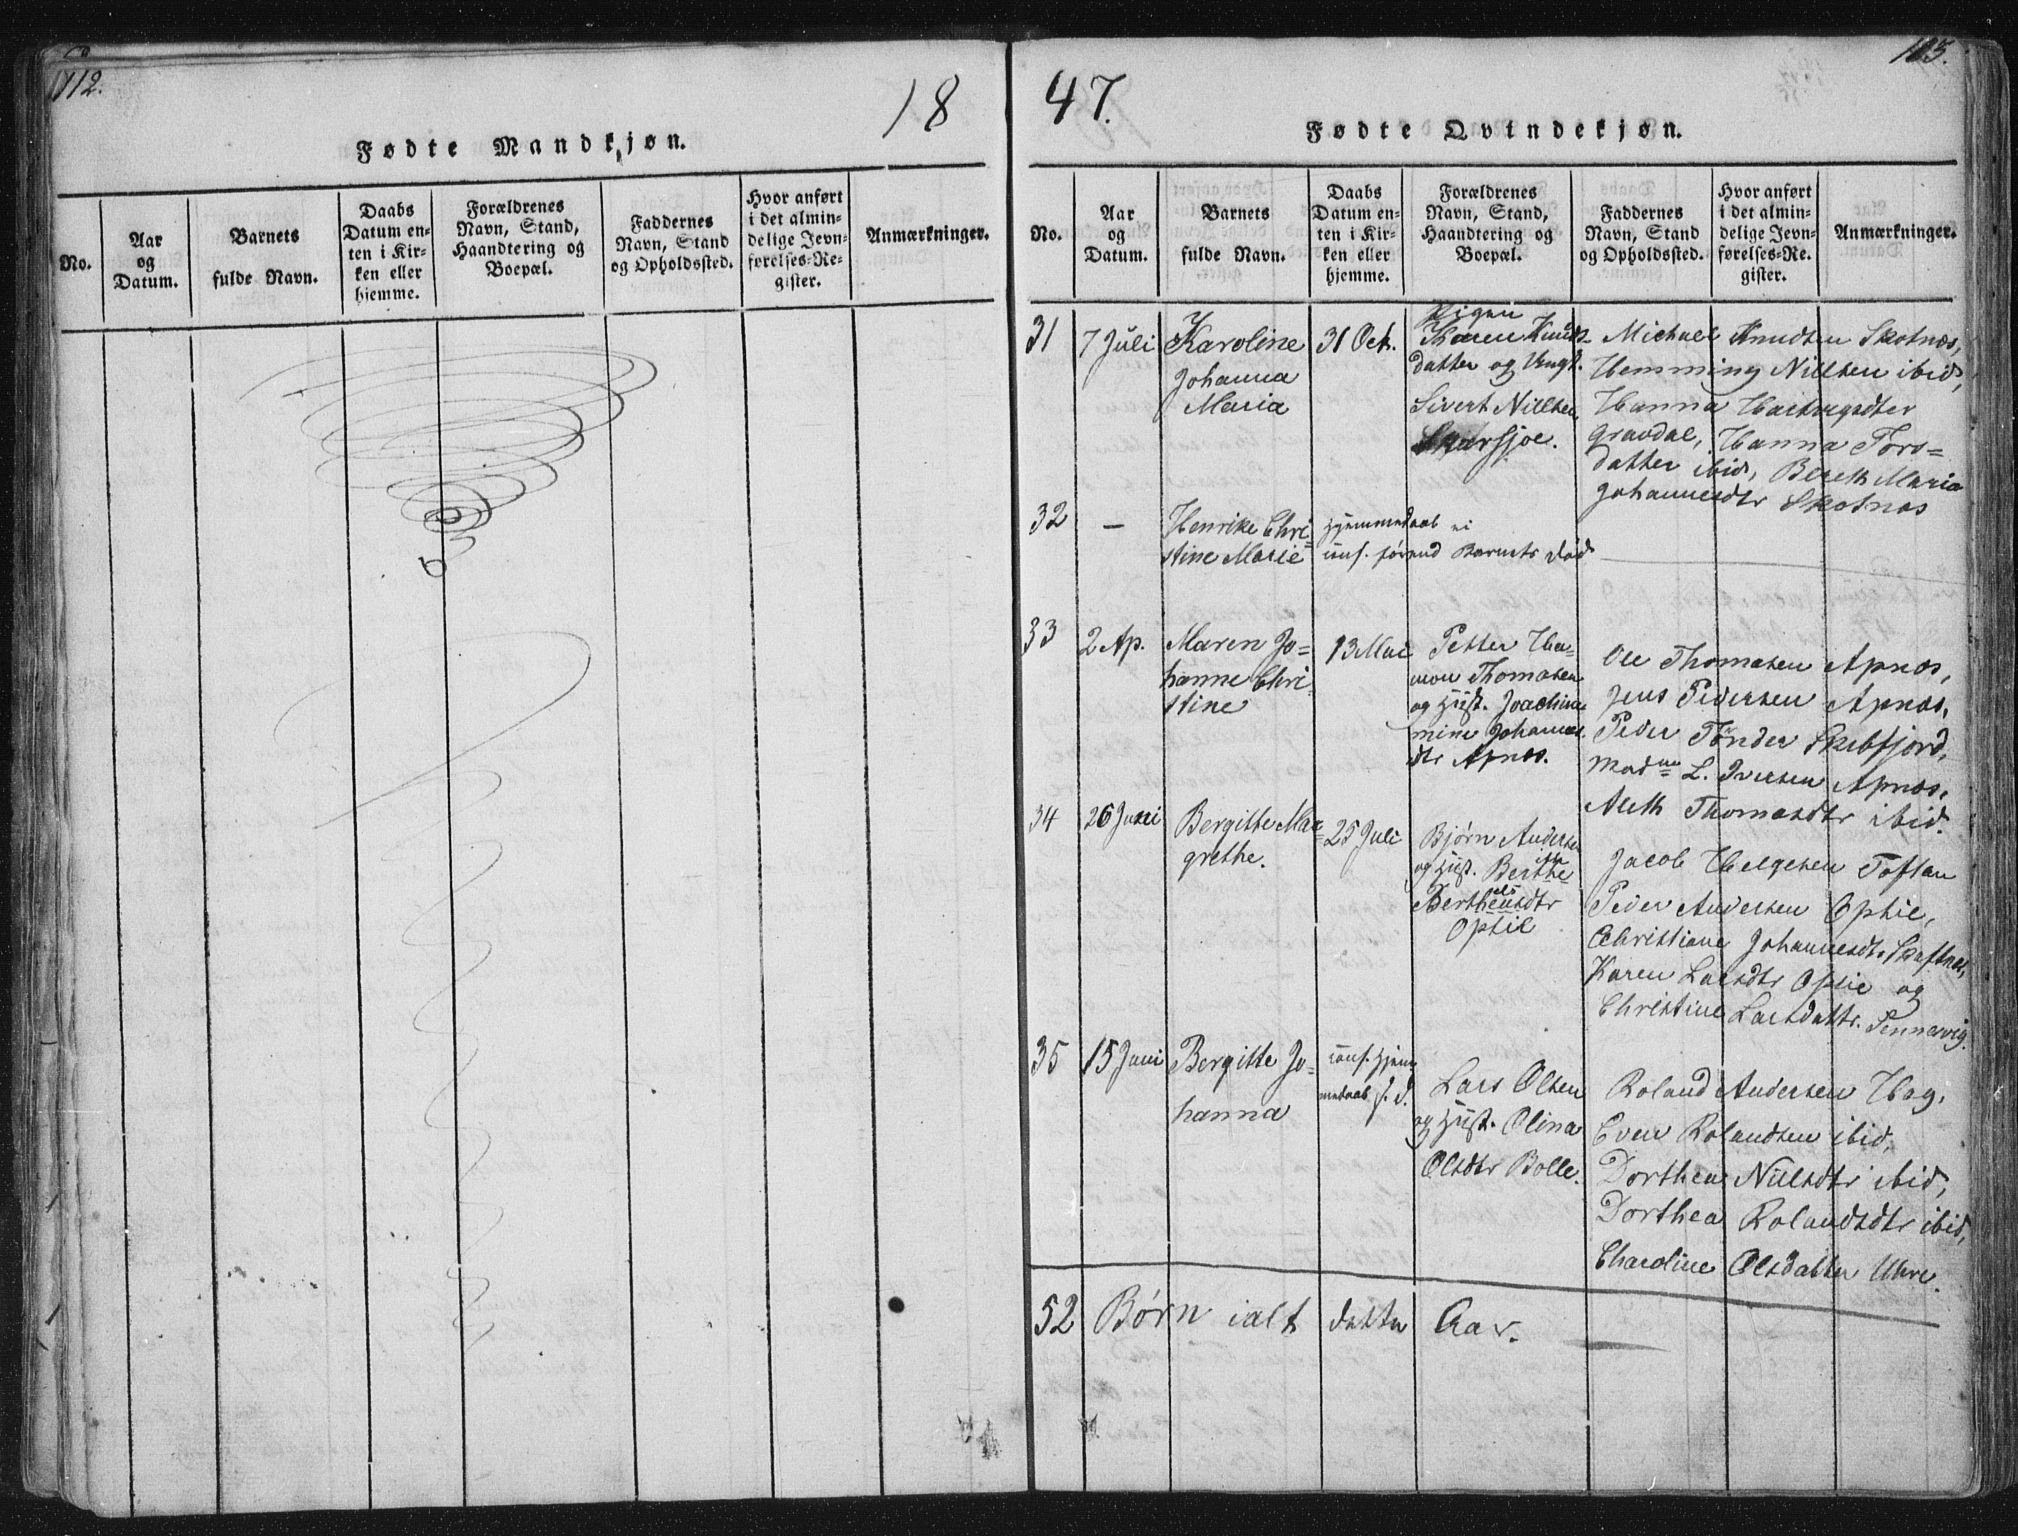 112.
18
Fødte Mandkjøn.
No.
Aar
og
Datum.
Barnets
fulde Navn.
Daabs
Datum en-
ten i Kir-
ken eller
hjemme.
Forældrenes
Navn, Stand,
Haandtering og
Boepæl.
Faddernes
Navn, Stand
og Opholdssted.
Hvor anført
i det almin-
delige Jevn-
førelses-Re-
gister.
Anmærkninger.
47.
Fødte Qvindekjøn.
No.
Aar
og
Datum.
Barnets
fulde Navn.
Daabs
Datum en-
ten i Kir-
ken eller
hjemme.
Forældrenes
Navn, Stand,
Haandtering og
Boepæl.
Faddernes
Navn, Stand
og Opholdssted.
Hvor anført
i det almin-
delige Jevn-
førelses-Re-
gister.
Anmærkninger.
31
7 Juli
Karoline
Johanna
Maria
31 Oct.
Pigen
Karen Knuds-
datter og Ungk.
Sivert Nillsen
Skarsjoe.
Michael Knudsen Skotnæs,
Hemming Nillsen ibid,
Hanna
Gravdal, Hanna Tors=
datter ibid, Bereth Maria
Johannesdtr Skotnæs
32
—
Henrike Chri=
stine Marie
Hjemmedaab ei
conf. førend Barnets Død
33
2 Ap.
Maren Jo=
hanne Chri-
stine
13 Mai
Petter Ha-
mon Thomasen
og Hust. Joachim
mine Johannes
dtr Apnæs.
Ole Thomasen Apnæs,
Jens Pedersen Apnæs,
Peder Tønder
Madme L. Iversen Apnæs,
Aleth Thomasdtr ibid.
34
26 Juni
Bergitte Mar=
grethe.
25 Juli
Bjørn Andersen
og Hust. Berthe
Berthelsdtr
Opsil
Jacob Helgesen Toftan
Peder Andersen Opsie,
Christiane Johannesdtr. Skaftnæs,
Karen Larsdtr Opsie og
Christine Larsdattr. Sennesvig.
35
15 Juni
Bergitte Jo=
hanna
conf. Hjem
medaab s. d.
Lars Olsen
og Hust. Olina
Olsdtr Bolle.
Roland Andersen Hag,
Even Rolandsen ibid,
Dorthea Nillsdtr ibid,
Dorthea Rolandsdtr ibid,
Charoline Olsdatter Uhre.
52 Børn ialt dette Aar.